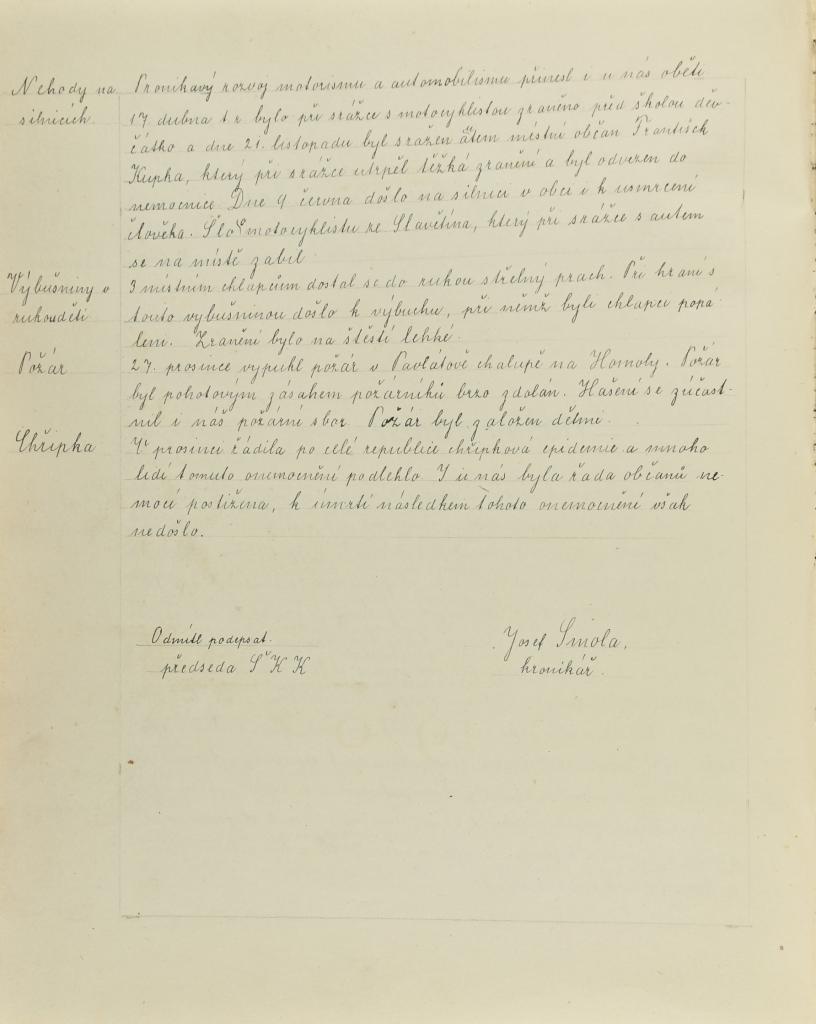 Nehody na silnicích.
Pronikavý rozvoj motorismu a automobilismu přinesl i u nás oběti
17. dubna t.r. bylo při srážce s motocyklistou zraněno před školou děv-
čátko a dne 21. listopadu byl sražen autem místní občan František
Kupka, který při srážce utrpěl těžká zranění a byl odvezen do
nemocnice. Dne 9 června došlo na silnici v obci i k usmrcení
člověka. Šlo o motocyklistu ze Slavětína, který při srážce s autem
se na místě zabil.
Výbušniny v rukou dětí
3 místním chlapcům dostal se do rukou střelný prach. Při hraní s
touto vybušninou došlo k výbuchu, při němž byli chlapci popá-
leni. Zranění bylo na štěstí lehké.
Požár
27. prosince vypukl požár v Pavlátově chalupě na Homoly. Požár
byl pohotovým zásahem požárníků brzo zdolán. Hašení se zúčast-
nil i náš požární sbor. Požár byl založen dětmi.
Chřipka
V prosinci řádila po celé republice chřipková epidemie a mnoho
lidí tomuto onemocnění podlehlo. I u nás byla řada občanů ne-
mocí postižena, k úmrtí následkem tohoto onemocnění však
nedošlo.
Odmítl podepsat.
předseda ŠKK
Josef Smola,
kronikář.